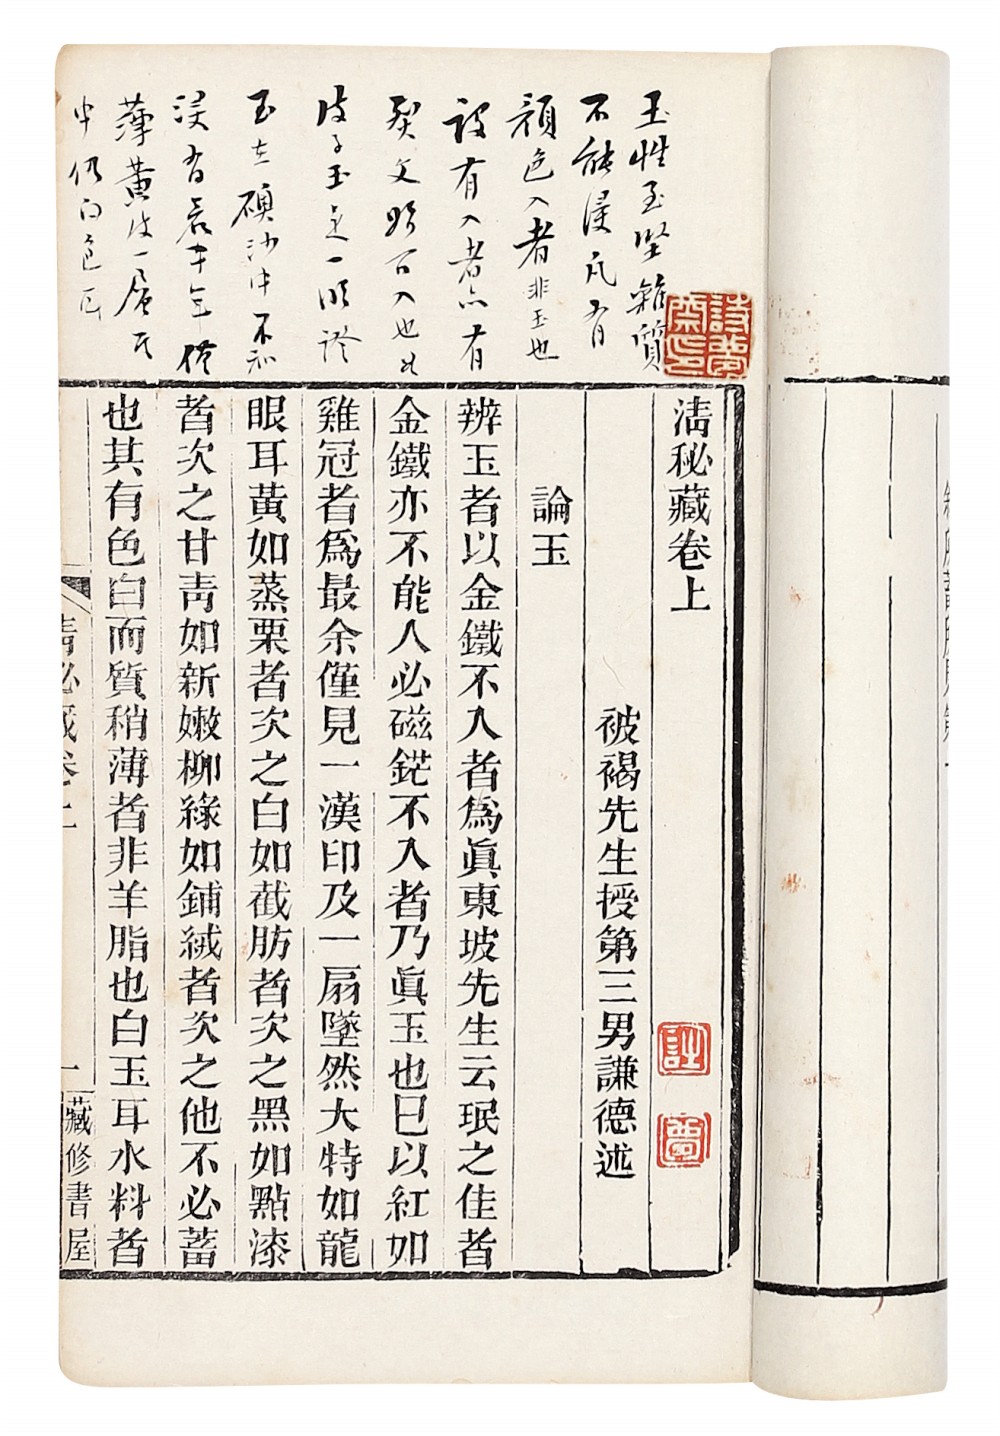 玉性至堅雜質
不能浸凡有
顏色入者非玉也
設有入者亦有
裂文始可入也此
皮子玉是一明證
玉在磧沙中不知
浸有若干年僅
薄黃皮一層其
中仍白色
清秘藏卷上
被褐先生授第三男謙德述
論玉
辨玉者以金鐵不入者爲眞東坡先生云珉之佳者
金鐵亦不能入必磁鋩不入者乃眞玉也已以紅如
雞冠者爲最余僅見一漢印及一扇墜然大特如龍
眼耳黃如蒸栗者次之白如截肪者次之黑如點漆
者次之甘靑如新嫩柳綠如鋪絨者次之他不必蓄
也其有色白而質稍薄者非羊脂也白玉耳水料者
清秘藏卷上
一
藏修書屋